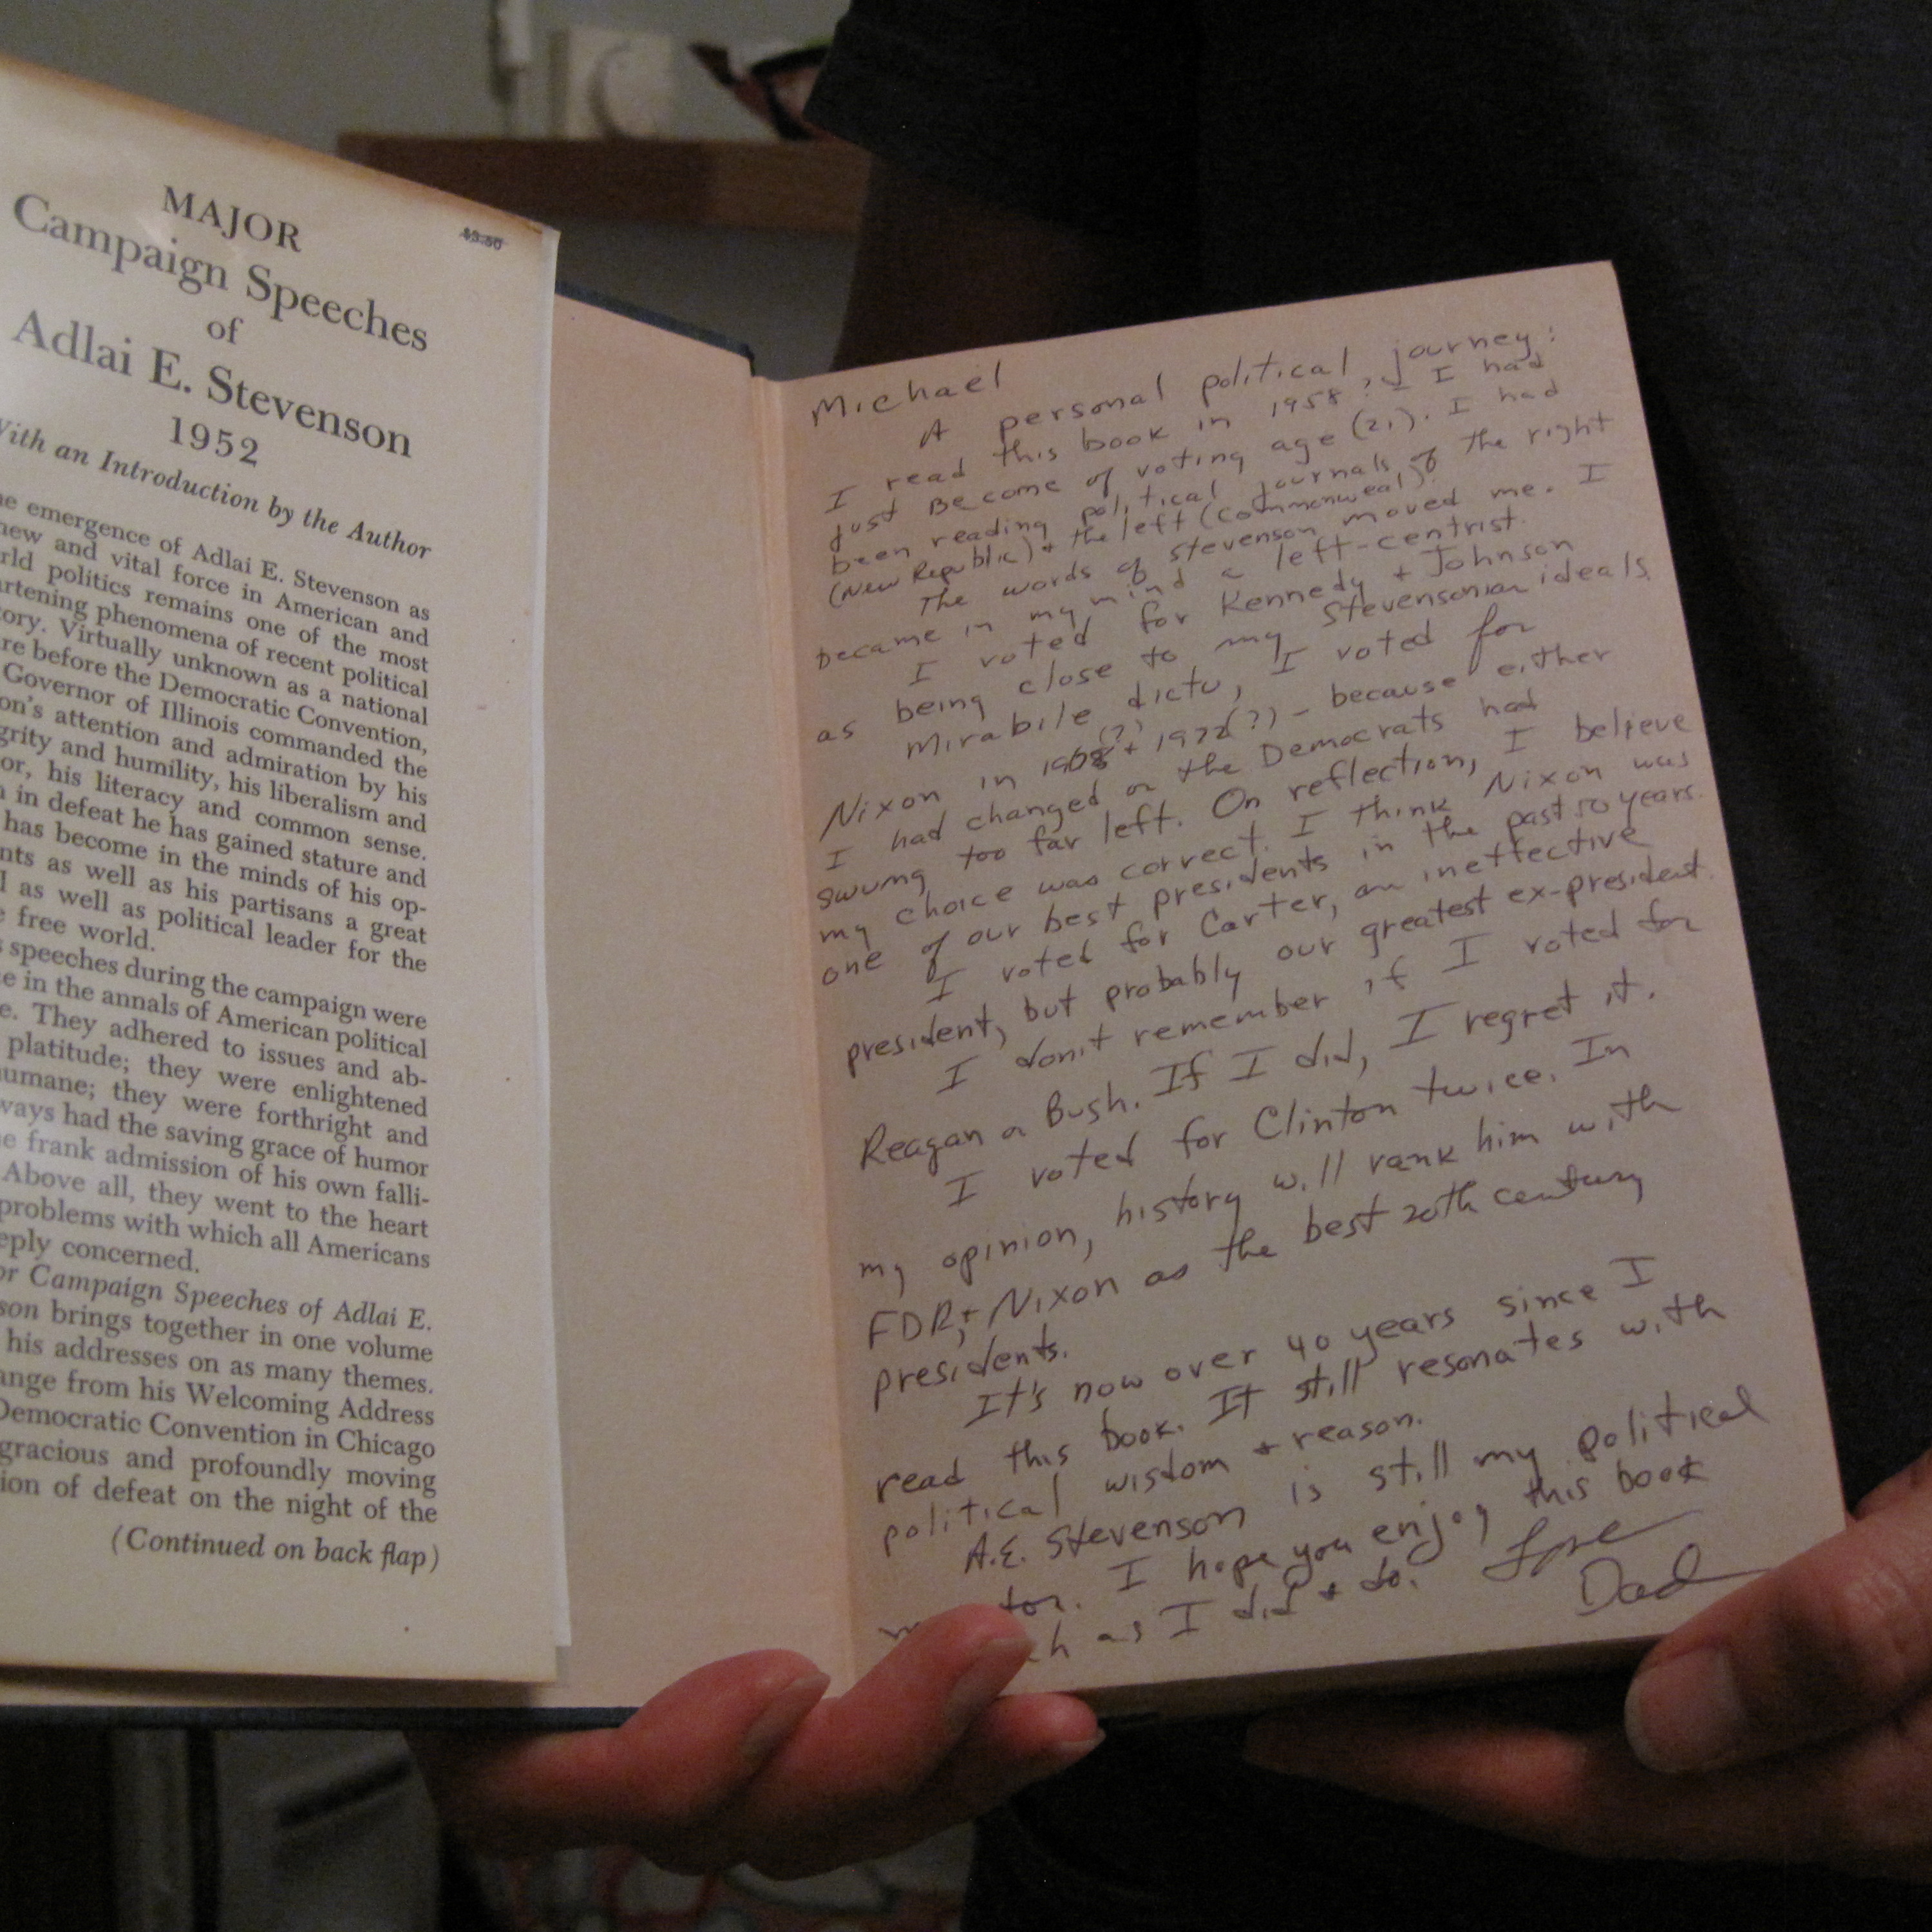 MAJOR
$3.50
Campaign Speeches
of
Adlai E. Stevenson
1952
With an Introduction by the Author
emergence of Adlai E. Stevenson as
new and vital force in American and
politics remains one of the most
phenomena of recent political
Virtually unknown as a national
before the Democratic Convention,
Governor of Illinois commanded the
attention and admiration by his
and humility, his liberalism and
his literacy and common sense.
in defeat he has gained stature and
has become in the minds of his op-
as well as his partisans a great
as well as political leader for the
free world.
speeches during the campaign were
in the annals of American political
They adhered to issues and ab-
platitude; they were enlightened
they were forthright and
had the saving grace of humor
frank admission of his own falli-
Above all, they went to the heart
problems with which all Americans
concerned.
Campaign Speeches of Adlai E.
brings together in one volume
his addresses on as many themes.
from his Welcoming Address
Democratic Convention in Chicago
gracious and profoundly moving
of defeat on the night of the
(Continued on back flap)
Michael
A personal political journey:
I read this book in 1958. I had
just Become of voting age (21). I had
been reading political journals of the right
(New Republic) + the left (commonweal).
The words of Stevenson moved me. I
became in my mind a left-centrist.
I voted for Kennedy + Johnson
as being close to my Stevensonian ideals.
Mirabile dictu, I voted for
Nixon in 1968(?) + 1972(?) - because either
I had changed or the Democrats had
swung too far left. On reflection, I believe
my choice was correct. I think Nixon was
one of our best presidents in the past 50 years.
I voted for Carter, an ineffective
president, but probably our greatest ex-president.
I don't remember if I voted for
Reagan or Bush. If I did, I regret it.
I voted for Clinton twice. In
my opinion, history will rank him with
FDR, + Nixon as the best 20th century
presidents.
It's now over 40 years since I
read this book. It still resonates with
political wisdom + reason.
A.E. Stevenson is still my political
I hope you enjoy this book
as I did + do. Love
Dad